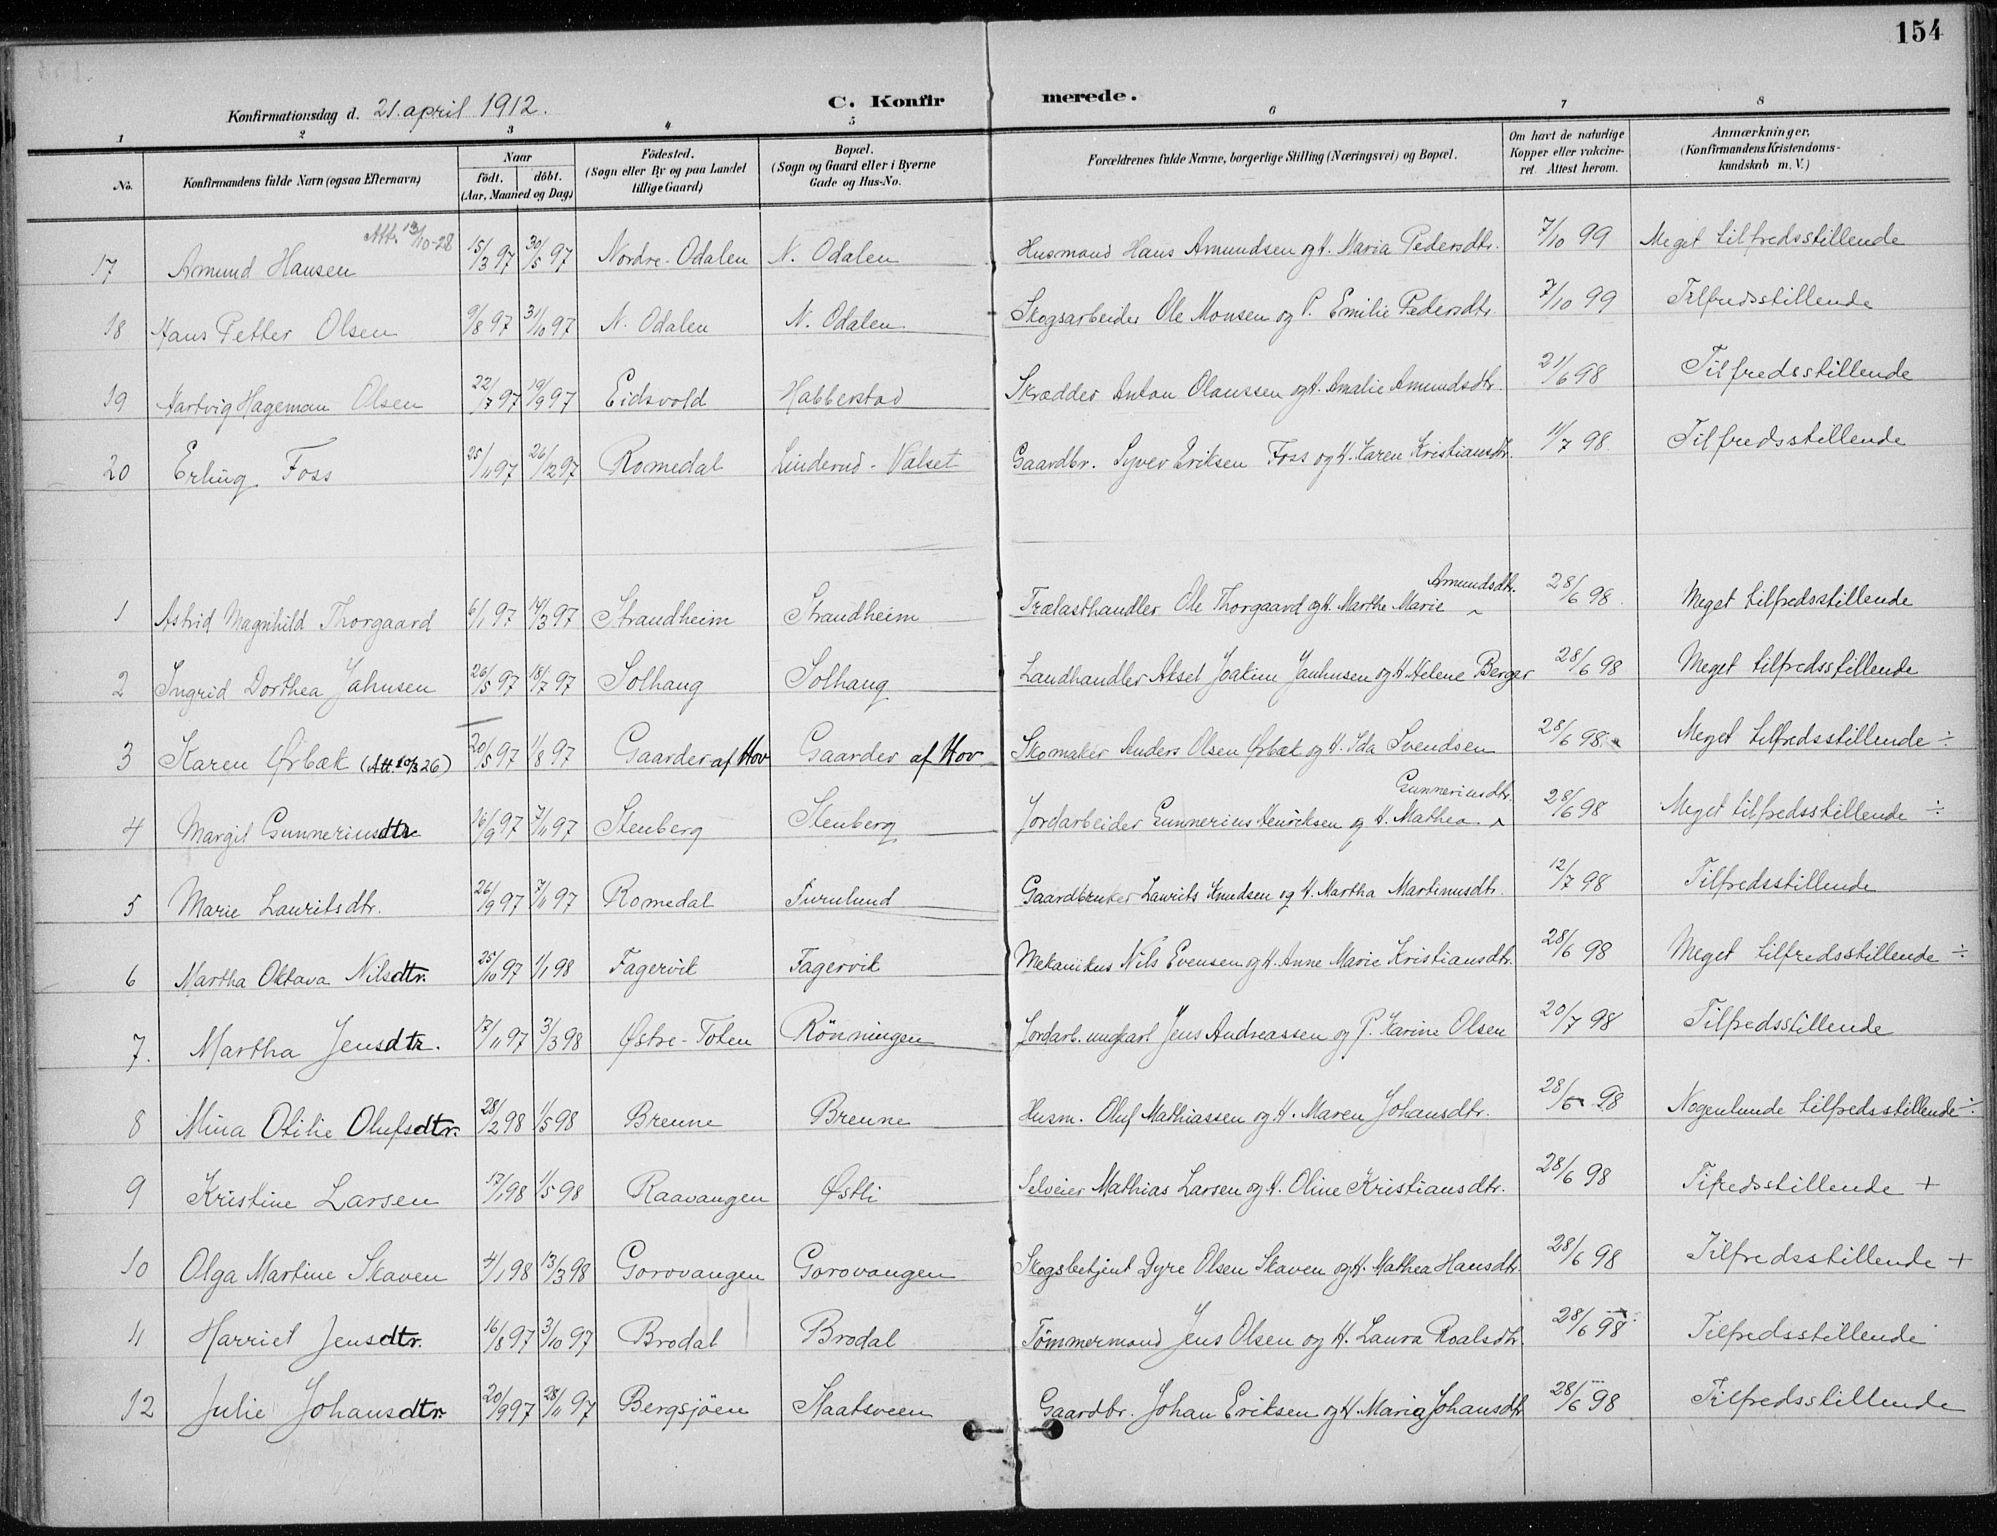 154
Konfirmationsdag d. 21. april 1912.
C. Konfirmerede.
1 2 3 4 5 6 7 8
No. Konfirmandens fulde Navn (ogsaa Efternavn) Naar født. døbt. (Aar, Maaned og Dag) Fødested. (Sogn eller By og paa Landet tillige Gaard) Bopæl. (Sogn og Gaard eller i Byerne Gade og Hus-No. Forældrenes fulde Navne, borgerlige Stilling (Næringsvei) og Bopæl. Om havt de naturlige Kopper eller vakcineret. Attest herom. Anmærkninger. (Konfirmandens Kristendomskundskab m. V.)
Att. 13/10-28
17 Amund Hansen 15/3 97 30/5 97 Nordre-Odalen N. Odalen Husmand Hans Amundsen og H. Maria Pedersdtr. 7/10 99 Meget tilfredsstillende
18 Hans Petter Olsen 9/8 97 31/10 97 N. Odalen N. Odalen Skogsarbeider Ole Monsen og P. Emilie Pedersdtr. 7/10 99 Tilfredsstillende
19 Hartvig Hageman Olsen 22/7 97 19/9 97 Eidsvold Habberstad Skrædder Anton Olaussen og H. Amalie Amundsdtr. 21/6 98 Tilfredsstillende
20 Erling Foss 25/11 97 26/12 97 Romedal Linderud-Valset Gaardbr. Syver Eriksen Foss og H. Karen Kristiansdtr. 11/7 98 Tilfredsstillende
Amundsdtr.
1 Astrid Magnhild Thorgaard 6/1 97 14/3 97 Strandheim Strandheim Trælasthandler Ole Thorgaard og H. Marthe Marie ^ 28/6 98. Meget tilfredsstillende
2 Ingrid Dorthea Jahnsen 26/5 97 18/7 97 Solhaug Solhaug Landhandler Aksel Joakim Janhnsen og H. Helene Berger 28/6 98 Meget tilfredsstillende
3 Karen Ørbæk (Att. 10/3 26) 20/5 97 1/8 97 Gaarder af Hov Gaarder af Hov Skomaker Anders Olsen Ørbæk og H. Ida Svendsen 28/6 98 Meget tilfredsstillende ÷
Gunneriusdtr.
4 Margit Gunneriusdtr. 16/9 97 7/11 97 Stenberg Stenberg Jordarbeider Gunnerius Henriksen og H. Mathea ^ 28/6 98 Meget tilfredsstillende ÷
5 Marie Lauritsdtr. 26/9 97 7/11 97 Romedal Furulund Gaardbruker Laurits Knudsen og H. Martha Martinusdtr. 12/7 98 Tilfredsstillende
6 Martha Oktava Nilsdtr. 25/10 97 1/1 98 Fagervik Fagervik Mekanikus Nils Evensen og H. Anne Marie Kristiansdtr. 28/6 98 Meget tilfredsstillende ÷
7. Martha Jensdtr. 17/11 97 3/3 98 Østre-Toten Rönningen Jordarb. ungkarl Jens Andreassen og P. Karine Olsen 20/7 98 Tilfredsstillende
8 Mina Otilie Olufsdtr. 28/2 98 1/5 98 Brenne Brenne Husm. Oluf Mathiassen og H. Maren Johansdtr. 28/6 98 Nogenlunde tilfredsstillende ÷
9 Kristine Larsen 17/1 98 1/5 98 Raavangen Østli Selveier Mathias Larsen og H. Oline Kristiansdtr. 28/6 98 Tifredsstillende +
10 Olga Martine Skaven 4/1 98 13/3 98 Gorovangen Gorovangen Skogsbetjent Dyre Olsen Skaven og H. Mathea Hansdtr. 28/6 98 Tilfredsstillende +
11 Harriet Jensdtr. 16/8 97 3/10 97 Brodal Brodal Tømmermand Jens Olsen og H. Laura Roalsdtr. 28/6 98 Tilfredsstillende
12 Julie Johansdtr. 20/9 97 28/11 97 Bergsjöen Staatsveen Gaardbr. Johan Eriksen og H. Maria Johansdtr 28/6 98 Tilfredsstillende